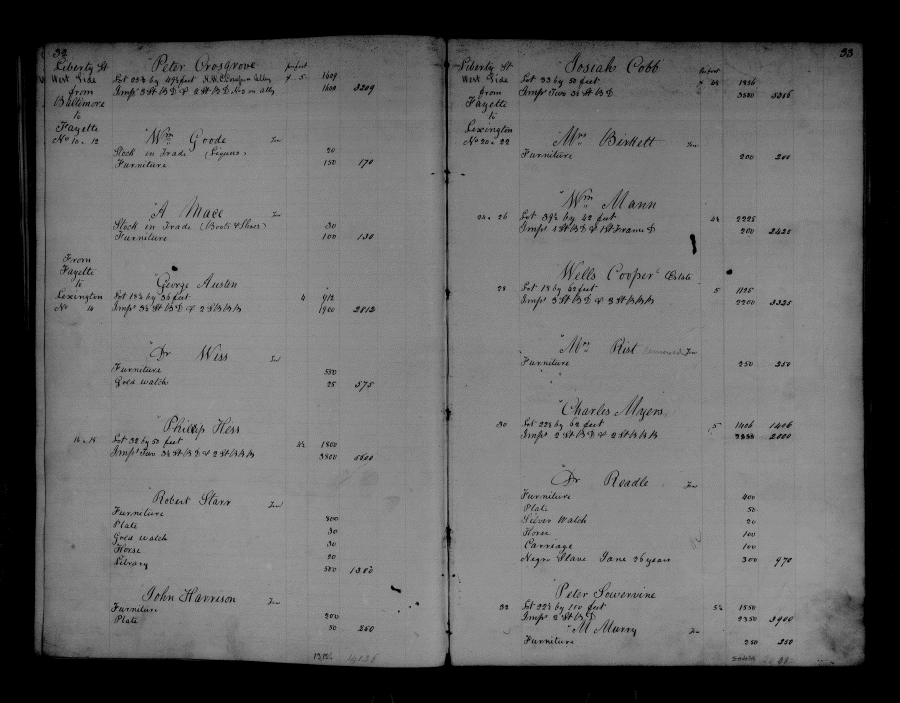 32
Liberty St
West Side
from
Baltimore
to
Fayette
No 10 & 12
Peter Crosgrove per foot
Lot by feet N.W. Alley 1609
Imps 3 St B D & 2 St B D in ally 1600 3209
Wm Goode Ten
Stock in Trade (Segars) 20
Furniture 150 170
A Mace Ten
Stock in Trade (Boots & Shoes) 30
Furniture 100 130
From
Fayette
to
Lexington
No 14
George Austen
Lot 18½ by 36 feet 4 912
Imps 3½ St B D & 2 St B B B 1900 2812
Dr Wiss Ten
Furniture 550
Gold Watch 25 575
Philip Hess
16 & 18 Lot 32 by 50 feet 4½ 1800
Imps Two 3½ St B D & 2 St B B B 3800 5600
Robert Starr Ten
Furniture 800
Plate 30
Gold Watch 30
Horse 20
Library 500 1380
John Harrison Ten
Furniture 200
Plate 50 250
33
Liberty St
West Side
from
Fayette
to
Lexington
No 20 & 22
Josiah Cobb per foot
Lot 33 by 50 feet 4½
Imps Two 3½ St B D 3500
Mrs Birkett Ten
Furniture 200 200
Wm Mann
24 & 26 Lot 39½ by 42 feet 4½ 2225
Imps 1 St B D & 1 St Frame D 200 2425
Wells Cooper Estate
28 Lot 18 by 62 feet 5 1125
Imps 3 St B D & 3 St B B B 2200 3325
Mrs Rist removed Ten
Furniture 250 250
Charles Myers
30 Lot 22½ by 62 feet 5 1406 1406
Imps 2 St B D & 2 St B B B 2000
Dr Readle Ten
Furniture 400
Plate 50
Silver Watch 20
Horse 100
Carriage 100
Negro Slave Jane 36 years 300 970
Peter Sowervine
32 Lot 22½ by 100 feet 5½ 1550
Imps 2 St B D 2350 3900
M Murry Ten
Furniture 250 250